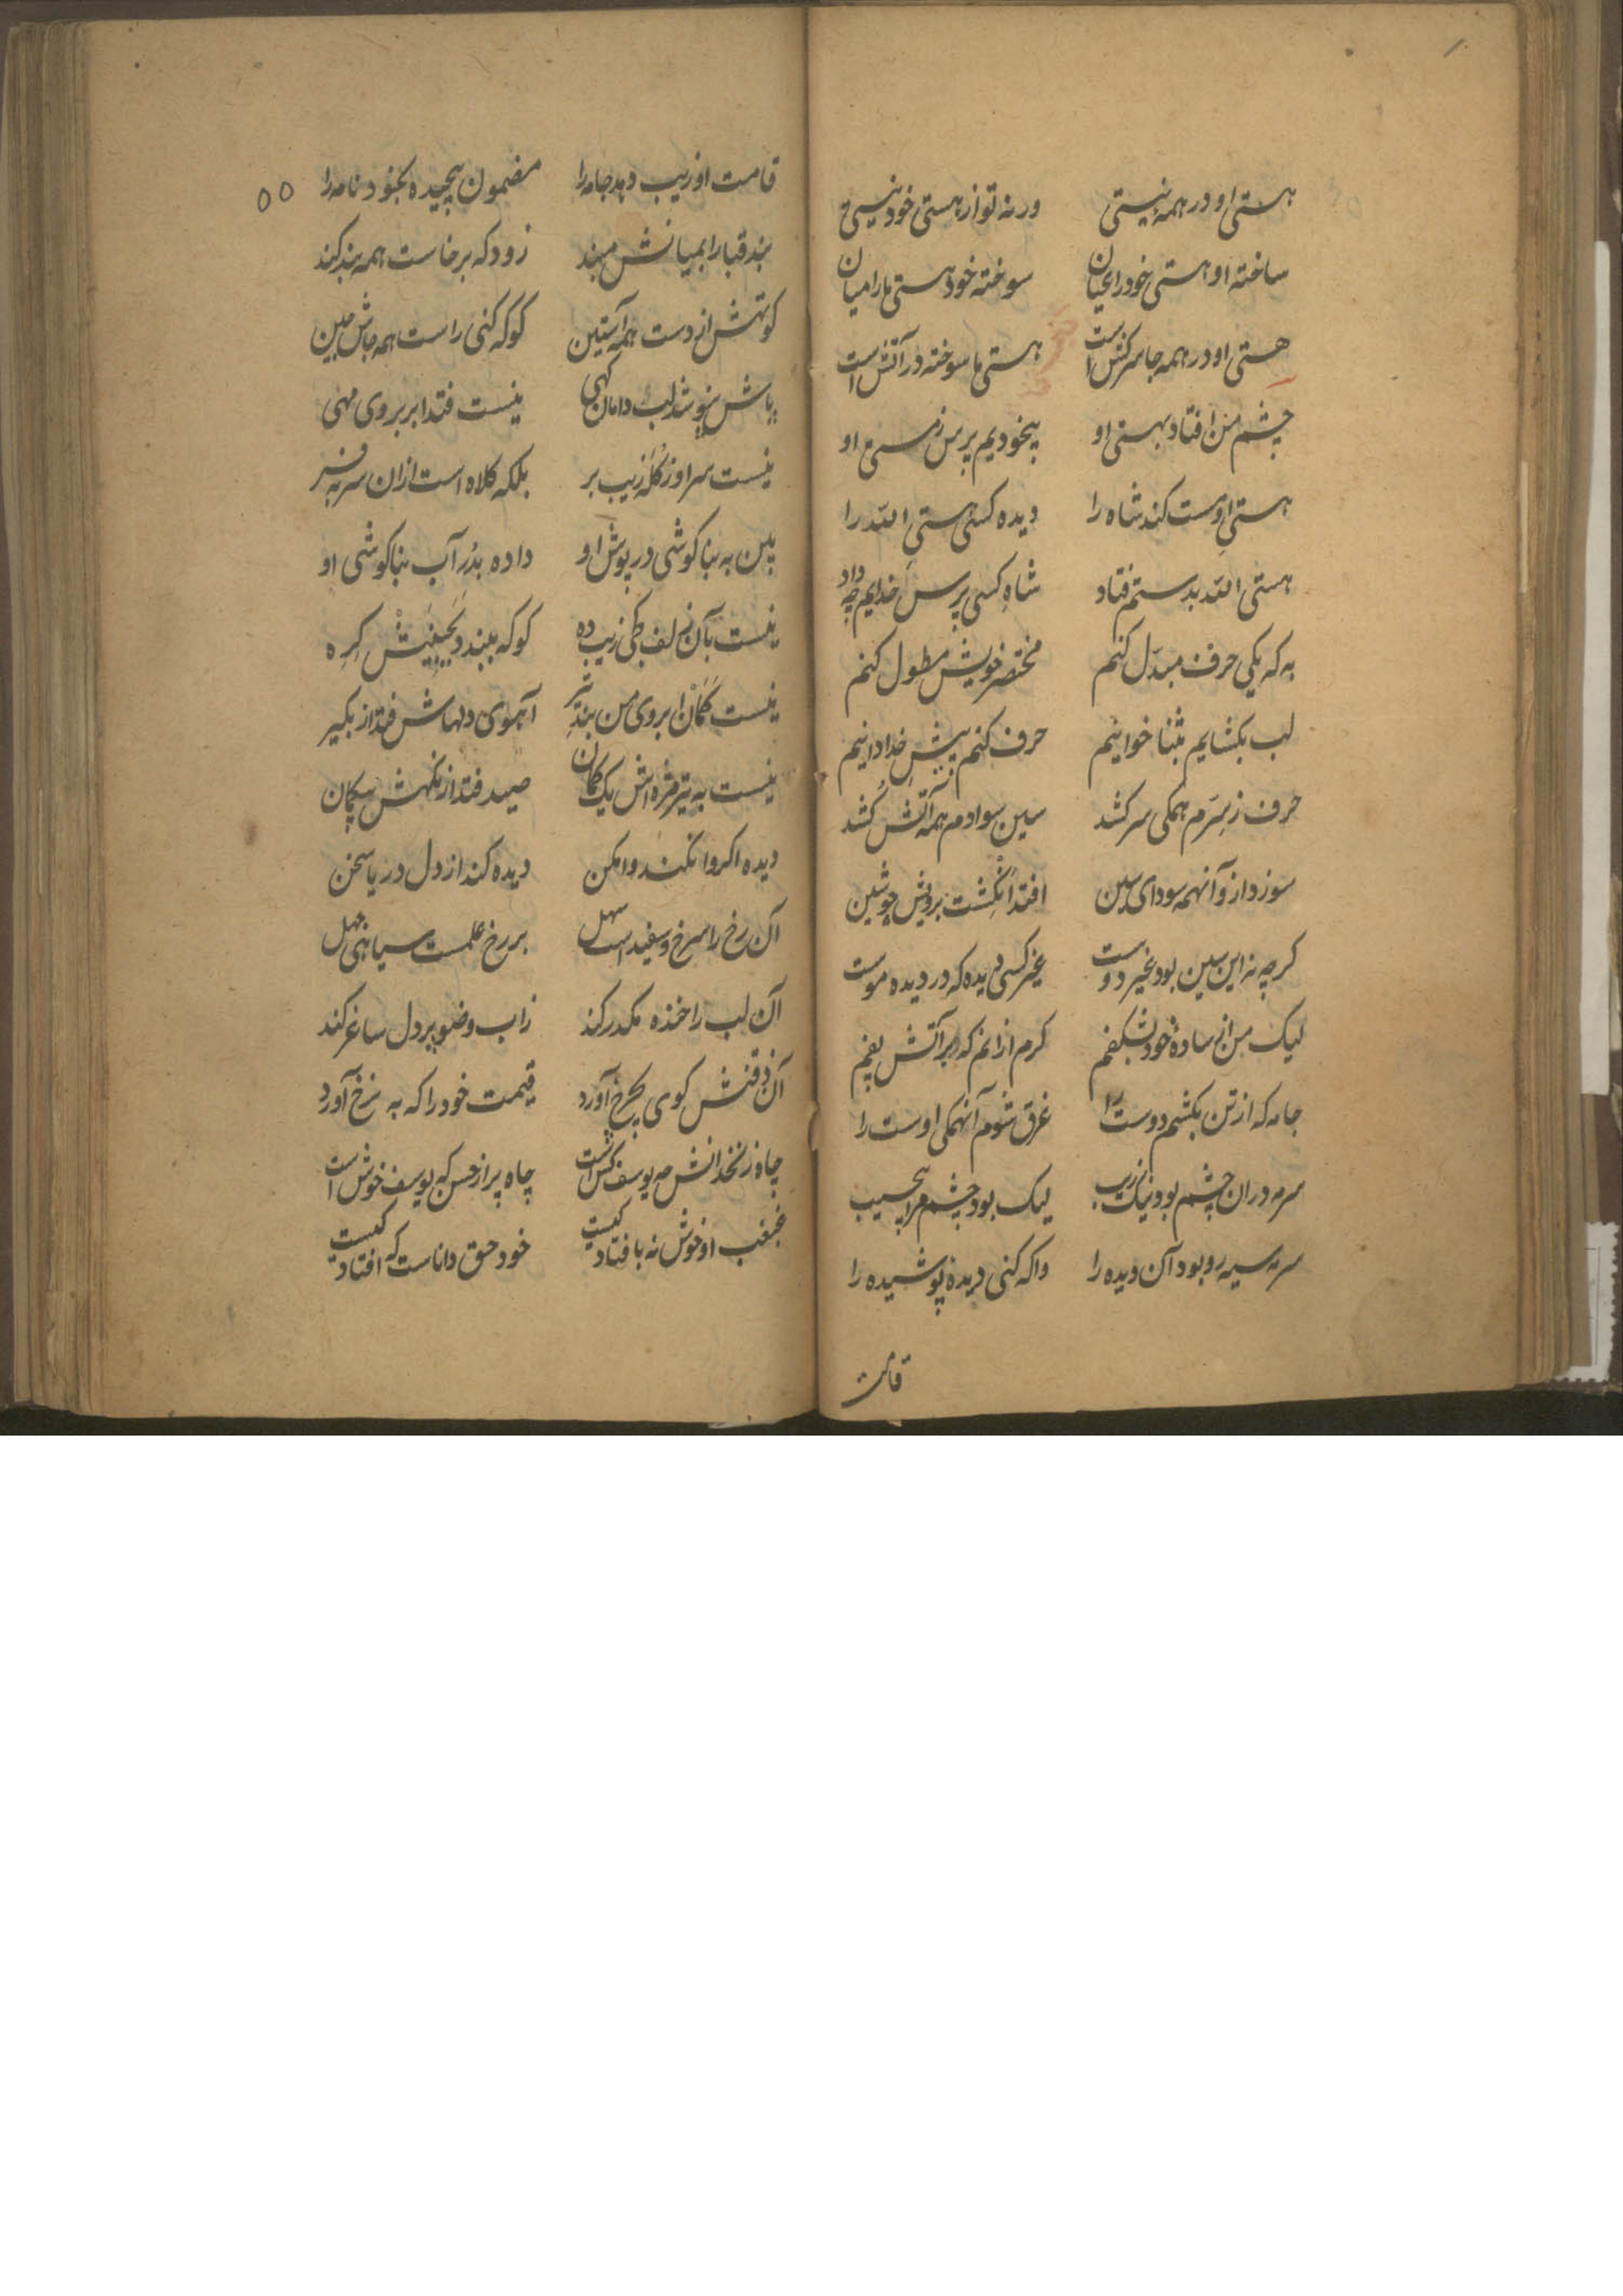 هستی او در همه نیستی ورنه تو از هستی خود نیستی
ساخته او هستی خود را عیان سوخته خود هستی ما را میان
هستی او در همه جا سرکش است هستی ما سوخته در آتش است
چشم من افتاد بهستی او بیخودیم پرس ز مستی او
هستی او مست کند شاه را دیده کسی هستی الله را
هستی الله بدستم فتاد شاه کسی پرس خدایم چه داد
به که یکی حرف مبدل کنم مختصر خویش مطول کنم
لب بکشایم بثنا خوانیم حرف کنم پیش خدادانیم
حرف ز سرم همکی سر کشد سین سوادم همه آتش کشد
سوزد ازو آنهمه سودای سین افتد انگشت برویش چو شین
کرچه نه این سین بود غیر دوست غیر کسی دیده که در دیده موست
لیک من از ساده خود بشکفم کرم ازانم که بر آتش بفم
جامه که از تن بکشم دوست را غرق شوم آنهمکی اوست را
سرمه دران چشم بود نیک زیب لیک بود چشم مرا بحسیب
سرمه سیه رو بود آن دیده را واکه کنی دیده پوشیده را
قامت
۵۵
قامت او زیب دهد جامه را مضمون پیچیده بخود نامه را
بند قبا را بمیانش مبند زود که برخاست همه بند کند
کوتهش از دست همه آستین کوکه کنی راست همه جاش چین
پاش بنوشد لب دامان کهی نیست فتد ابر بروی مهی
نیست سر او ز کله زیب بر بلکه کلاه است ازان سر بفر
بین به بناکوشی در پوش او داده بدر آب بناکوشی او
نیست بآن زلف کمی زیب ده کوکه ببند دبحیفیش کره
نیست کمان ابروی من بند تیر آهوی دلهاش فتد از بکیر
نیست به تیر مژه اش یک کمان صید فتد از نکهش بیکمان
دیده اکر وا نکند وا مکن دیده کند از دل دریا سخن
آن رخ را سرخ و سفید است سهل بر رخ علمت سیاهی جهل
آن لب را خنده مکدر کند زاب وضو پر دل ساغر کند
آن ذقنش کوی بچرخ آورد قیمت خود را که به نرخ آورد
چاه زنخدانش مه یوسف کش است چاه پر از حسن که یوسف خوش است
غبغب او خوش نه بافتاد کیست خود حق داناست که افتاد کیست